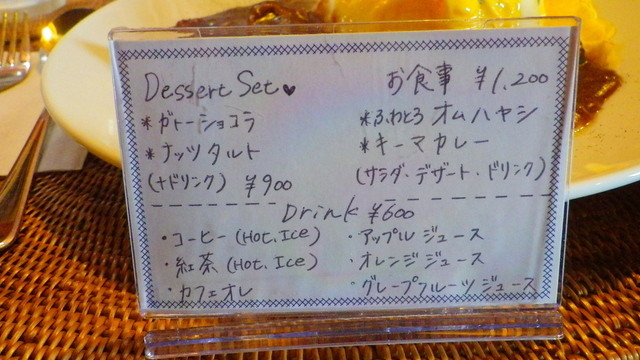 Dessert Set♥
*ガトーショコラ
*ナッツタルト
(+ドリンク) ¥900
お食事 ¥1,200
*ふわとろオムハヤシ
*キーマカレー
(サラダ・デザート・ドリンク)
Drink ¥600
・コーヒー (Hot, Ice)
・紅茶 (Hot, Ice)
・カフェオレ
・アップルジュース
・オレンジジュース
・グレープフルーツジュース